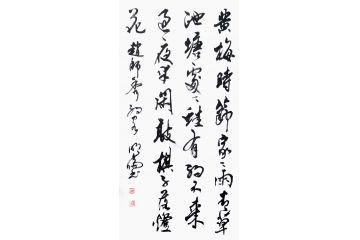 黄梅時節家〻雨青草
池塘處〻蛙有約不来
過夜半閑敲棋子落燈
花 趙師秀約客